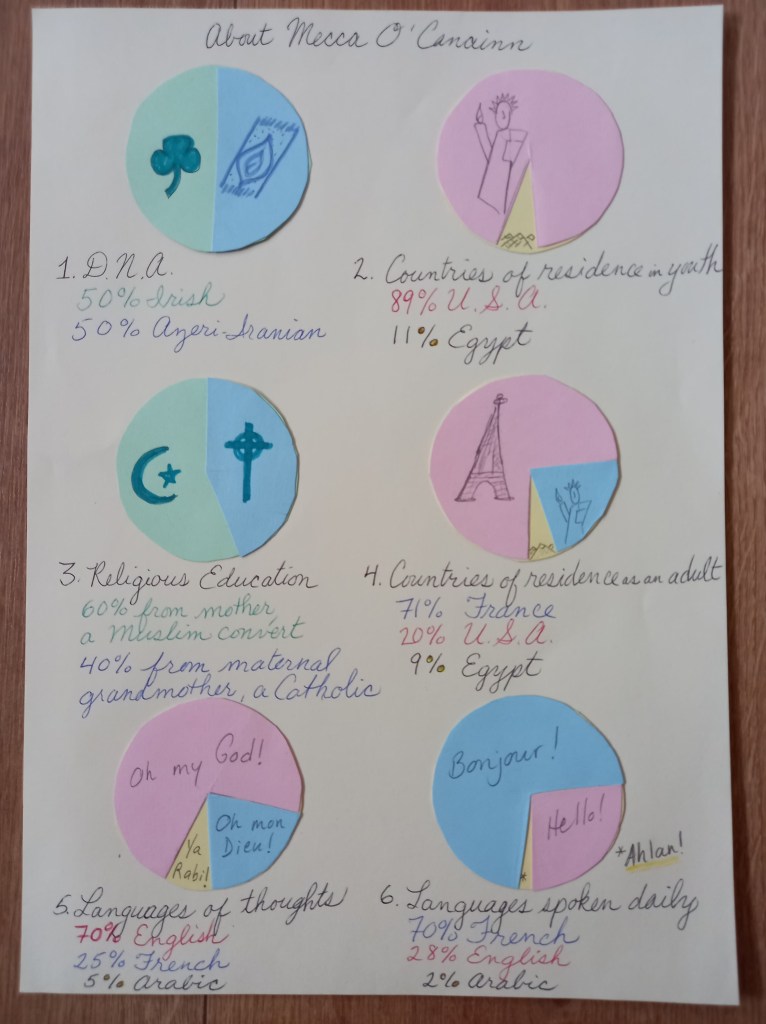 About Mecca O'Canainn
1. D.N.A.
50% Irish
50% Azeri-Iranian
2. Countries of residence in youth
89% U.S.A.
11% Egypt
3. Religious Education
60% from mother,
a Muslim convert
40% from maternal
grandmother, a Catholic
4. Countries of residence as an adult
71% France
20% U.S.A.
9% Egypt
Oh my God!
Oh mon
Dieu!
Ya
Rabi!
5. Languages of thoughts
70% English
25% French
5% Arabic
Bonjour!
Hello!
*
*Ahlan!
6. Languages spoken daily
70% French
28% English
2% Arabic